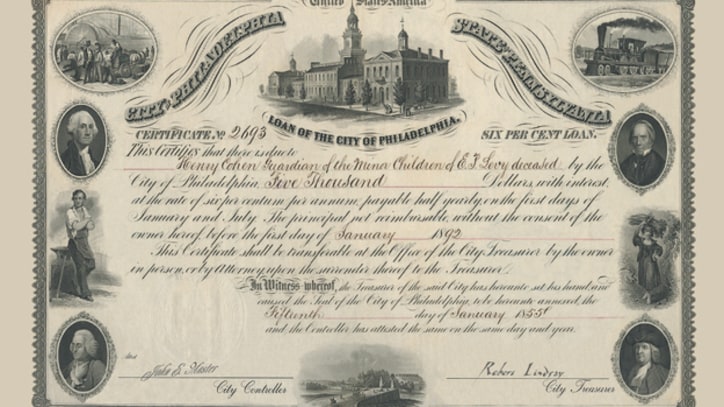 United States America
CITY OF PHILADELPHIA
STATE OF PENNSYLVANIA
LOAN OF THE CITY OF PHILADELPHIA.
CERTIFICATE No 2693
SIX PER CENT LOAN.
This Certifies that there is due to
Henry Cohen Guardian of the Minor Children of E. J. Levy deceased by the
City of Philadelphia, Five Thousand Dollars, with interest,
at the rate of six per centum per annum, payable half yearly, on the first days of
January and July. The principal not reimbursable without the consent of the
owner hereof, before the first day of January 1892
This Certificate shall be transferable at the Office of the City Treasurer by the owner
in person, or by Attorney upon the surrender thereof to the Treasurer.
In Witness whereof, the Treasurer of the said City has hereunto set his hand and
caused the Seal of the City of Philadelphia, to be hereunto annexed, the
Fifteenth day of January 1855
and the Controller has attested the same on the same day and year.
John E. Robert Lindsay
City Controller
City Treasurer